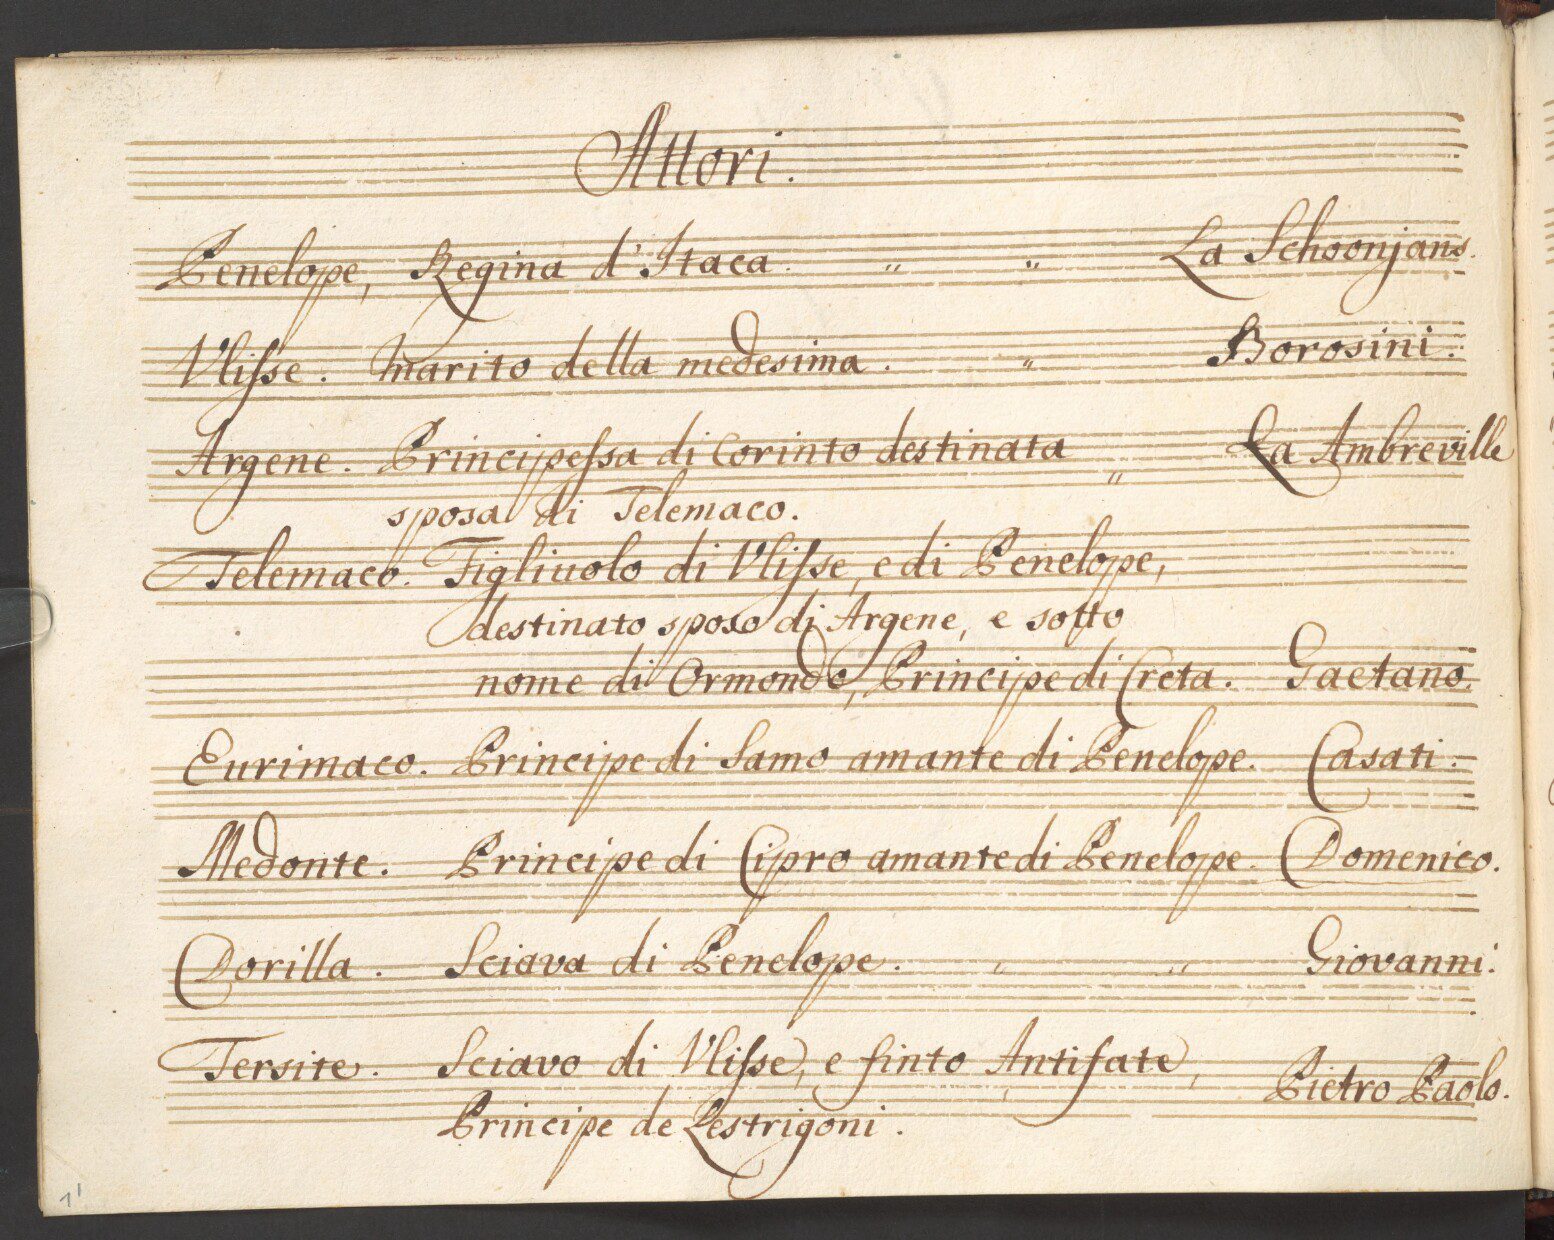 Attori.
Penelope, Regina d'Itaca. " " La Schoonjans.
Ulisse. Marito della medesima. " Borosini.
Argene. Principessa di Corinto destinata " La Ambreville
sposa di Telemaco.
Telemaco. Figliuolo di Ulisse, e di Penelope,
destinato sposo di Argene, e sotto
nome di Ormondo, Principe di Creta. Gaetano.
Eurimaco. Principe di Samo amante di Penelope. Casati.
Medonte. Principe di Cipro amante di Penelope. Domenico.
Dorilla. Sciava di Penelope. " " Giovanni.
Tersite. Sciavo di Ulisse, e finto Antifate,
Pietro Paolo.
Principe de Lestrigoni.
1'